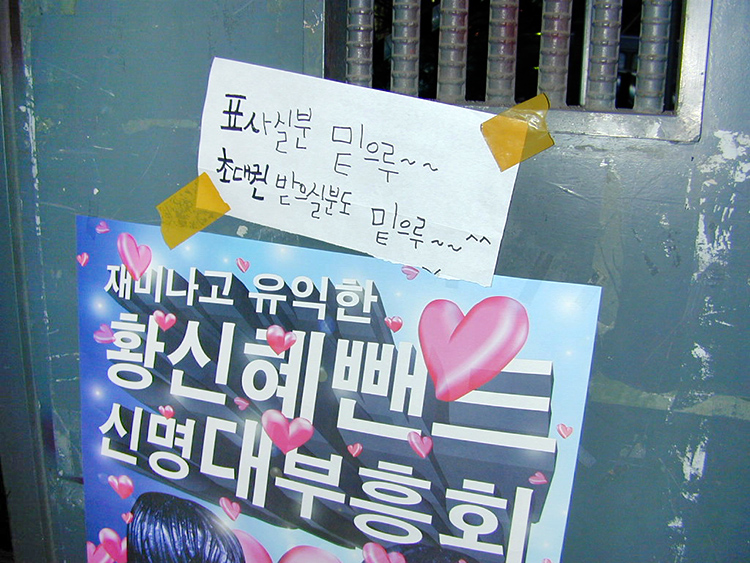 표사실분 밑으루~~
초대권 받으실분도 밑으루~~^^
재미나고 유익한
황신혜밴드
신명대부흥회